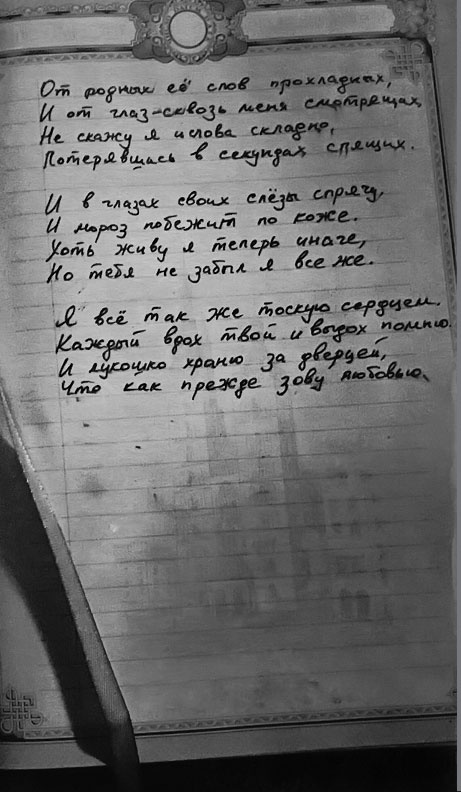 От родных её слов прохладных,
И от глаз-сквозь меня смотрящих,
Не скажу я и слова складно,
Потерявшись в секундах спящих.
И в глазах своих слёзы спрячу,
И мороз побежит по коже.
Хоть живу я теперь иначе,
Но тебя не забыл я все же.
Я всё так же тоскую сердцем.
Каждый вдох твой и выдох помню.
И лукошко храню за дверцей,
Что как прежде зову любовью.